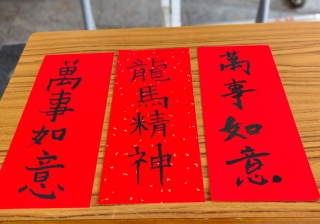 萬事如意
龍馬精神
萬事如意